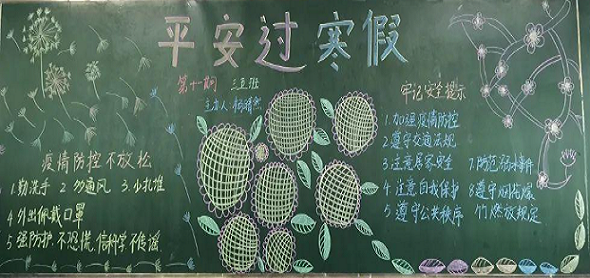 平安过寒假
第十期 三5班
主办人:
疫情防控不放松
1.勤洗手 2.勿通风 3.少扎堆
4.外出佩戴口罩
5.强防护,不恐慌,信科学不传谣
牢记安全提示
1.加强疫情防控
2.遵守交通法规
3.注意居家安全
4.注意自我保护
5.遵守公共秩序
7.防范溺水事件
8.遵守烟花爆
竹燃放规定